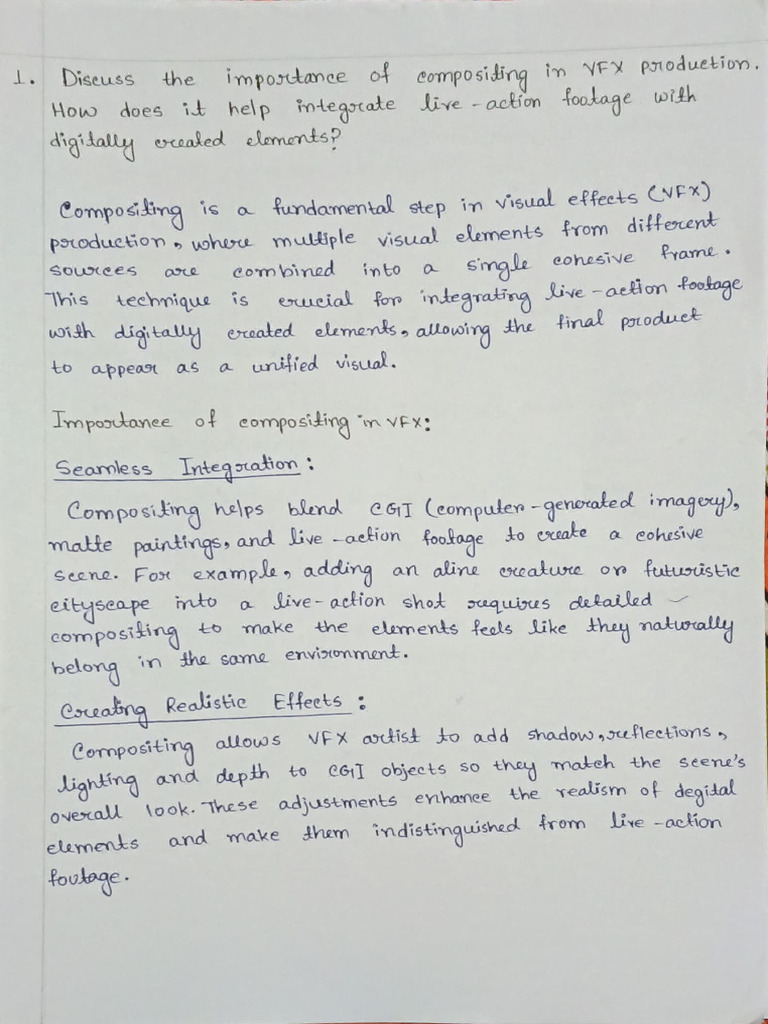 1. Discuss the importance of compositing in VFX production.
How does it help integrate live-action footage with
digitally created elements?
Compositing is a fundamental step in visual effects (VFX)
production, where multiple visual elements from different
sources are combined into a single cohesive frame.
This technique is crucial for integrating live-action footage
with digitally created elements, allowing the final product
to appear as a unified visual.
Importance of compositing in VFX:
Seamless Integration:
Compositing helps blend CGI (computer-generated imagery),
matte paintings, and live-action footage to create a cohesive
scene. For example, adding an aline creature or futuristic
cityscape into a live-action shot requires detailed
compositing to make the elements feels like they naturally
belong in the same environment.
Creating Realistic Effects:
Compositing allows VFX artist to add shadow, reflections,
lighting and depth to CGI objects so they match the scene's
overall look. These adjustments enhance the realism of degital
elements and make them indistinguished from live-action
foutage.